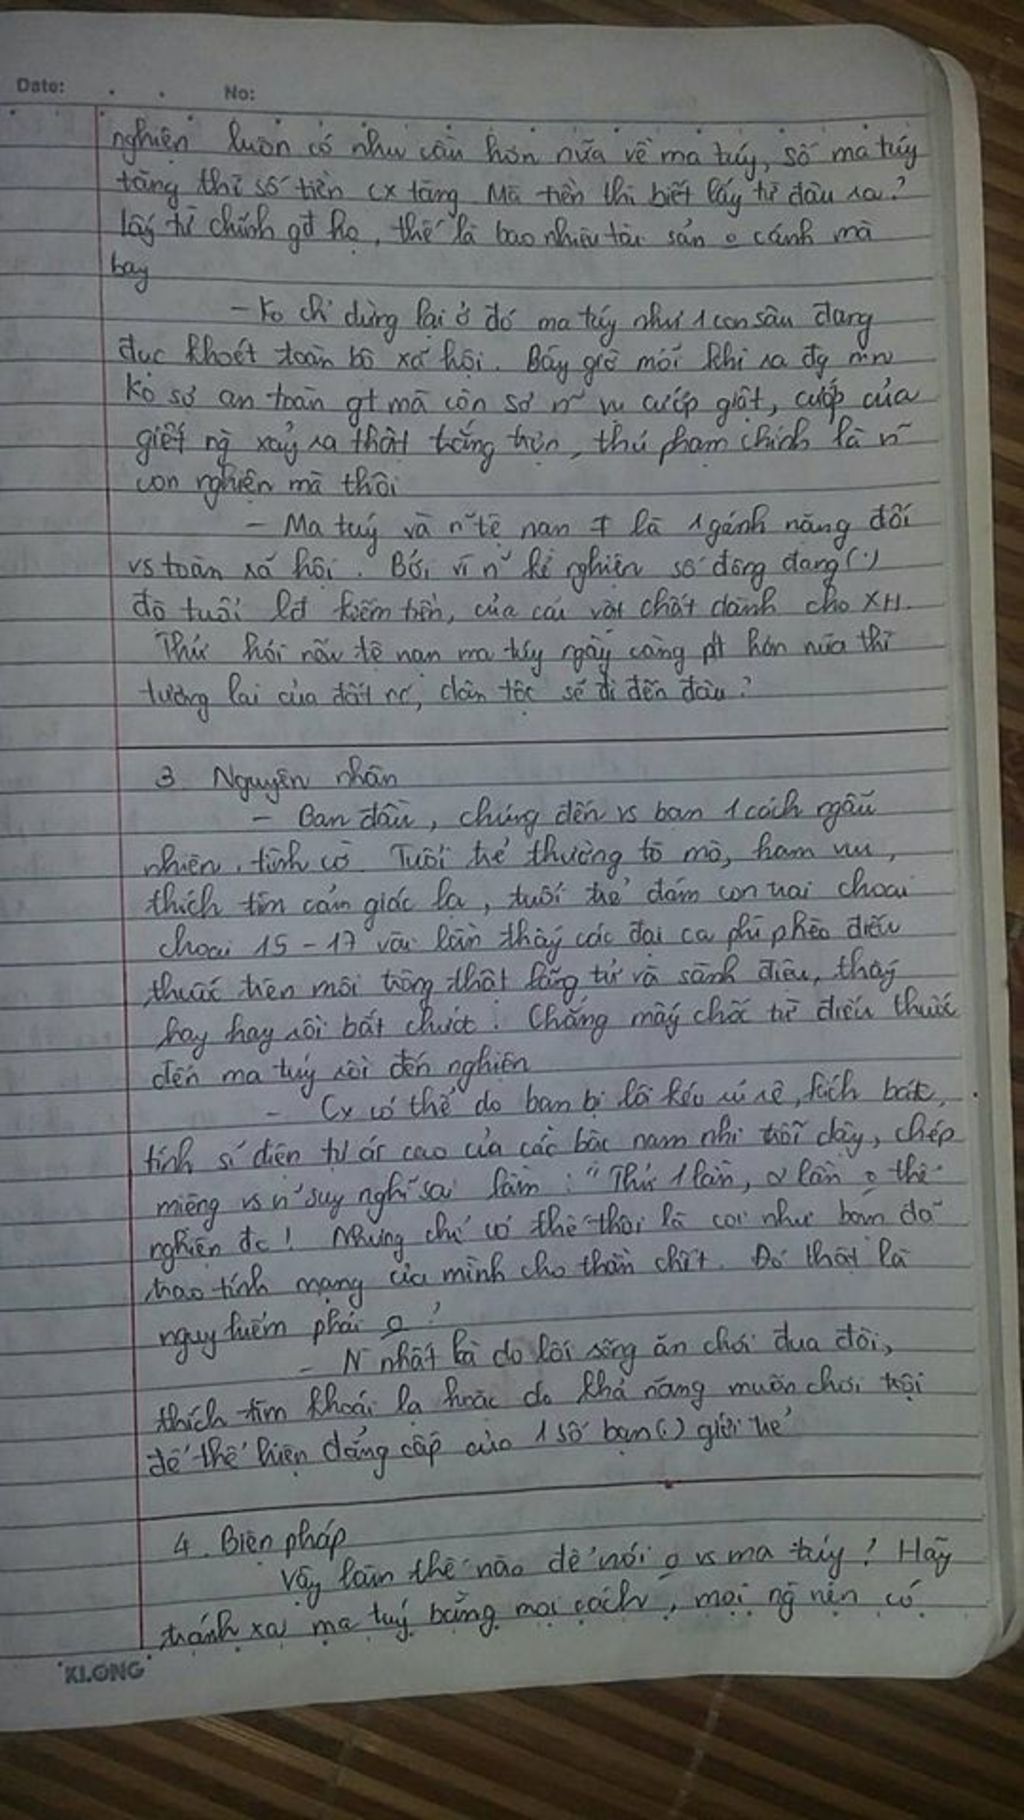 Date: . . No:
nghiện luôn có nhu cầu hơn nữa về ma túy, số ma túy
tăng thì số tiền cx tăng. Mà tiền thì biết lấy từ đâu ra?
lấy từ chính gđ họ, thế là bao nhiêu tài sản o cánh mà
bay
- Ko chỉ dừng lại ở đó ma túy như 1 con sâu đang
đục khoét toàn bộ xã hội. Bây giờ mỗi khi ra đg
ko sợ an toàn gt mà còn sợ n~ vụ cướp giật, cướp của
giết ng xảy ra thật trắng trợn, thủ phạm chính là n~
con nghiện mà thôi
- Ma tuý và n~ tệ nạn ≠ là 1 gánh nặng đối
vs toàn xã hội. Bởi vì n~ kẻ nghiện số đông đang (.)
độ tuổi lđ kiếm tiền, của cải vật chất dành cho XH.
Thử hỏi nếu tệ nạn ma túy ngày càng pt hơn nữa thì
tương lai của đất nc, dân tộc sẽ đi đến đâu?
3. Nguyên nhân
- Ban đầu, chúng đến vs bạn 1 cách ngẫu
nhiên, tình cờ. Tuổi trẻ thường tò mò, ham vui,
thích tìm cảm giác lạ, tuổi trẻ đám con trai choai
choai 15 - 17 vài lần thấy các đại ca phì phèo điếu
thuốc trên môi trông thật lãng tử và sành điệu, thấy
hay hay rồi bắt chước. Chẳng mấy chốc từ điếu thuốc
đến ma túy rồi đến nghiện
- Cx có thể do bạn bị lôi kéo rủ rê, kích bác,
tính sĩ diện tự ái cao của các bậc nam nhi trỗi dậy, chép
miệng vs n~ suy nghĩ sai lầm: "Thử 1 lần, 2 lần o thể
nghiện đc! Nhưng chỉ có thế thôi là coi như bạn đã
trao tính mạng của mình cho thần chết. Đó thật là
nguy hiểm phải o?
- N~ nhất là do lối sống ăn chơi đua đòi,
thích tìm khoái lạ hoặc do khả năng muốn chơi trội
để thể hiện đẳng cấp của 1 số bạn (.) giới trẻ
4. Biện pháp
Vậy làm thế nào để nói o vs ma túy! Hãy
tránh xa ma tuý bằng mọi cách, mọi ng nên có
KLONG